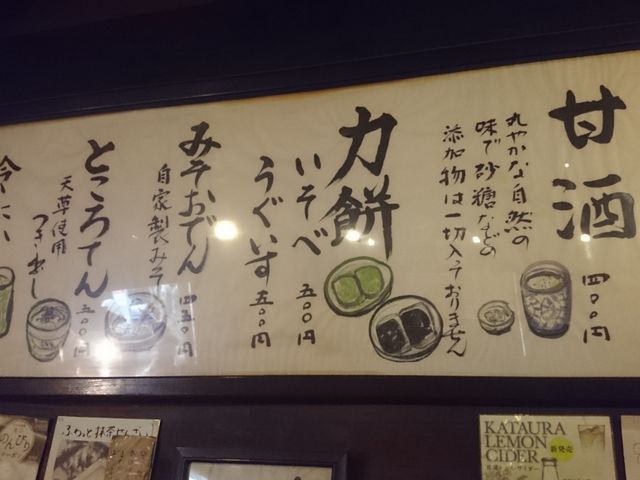 甘酒
丸やかな自然の
味で砂糖などの
添加物は一切入っておりません
四〇〇円
力餅
いそべ 五〇〇円
うぐいす 五〇〇円
みそおでん
自家製みそ 四五〇円
ところてん
天草使用
つき出し 五〇〇円
冷たい
のんびり
ふわっと抹茶ぜんざい
KATAURA
LEMON
CIDER
新発売